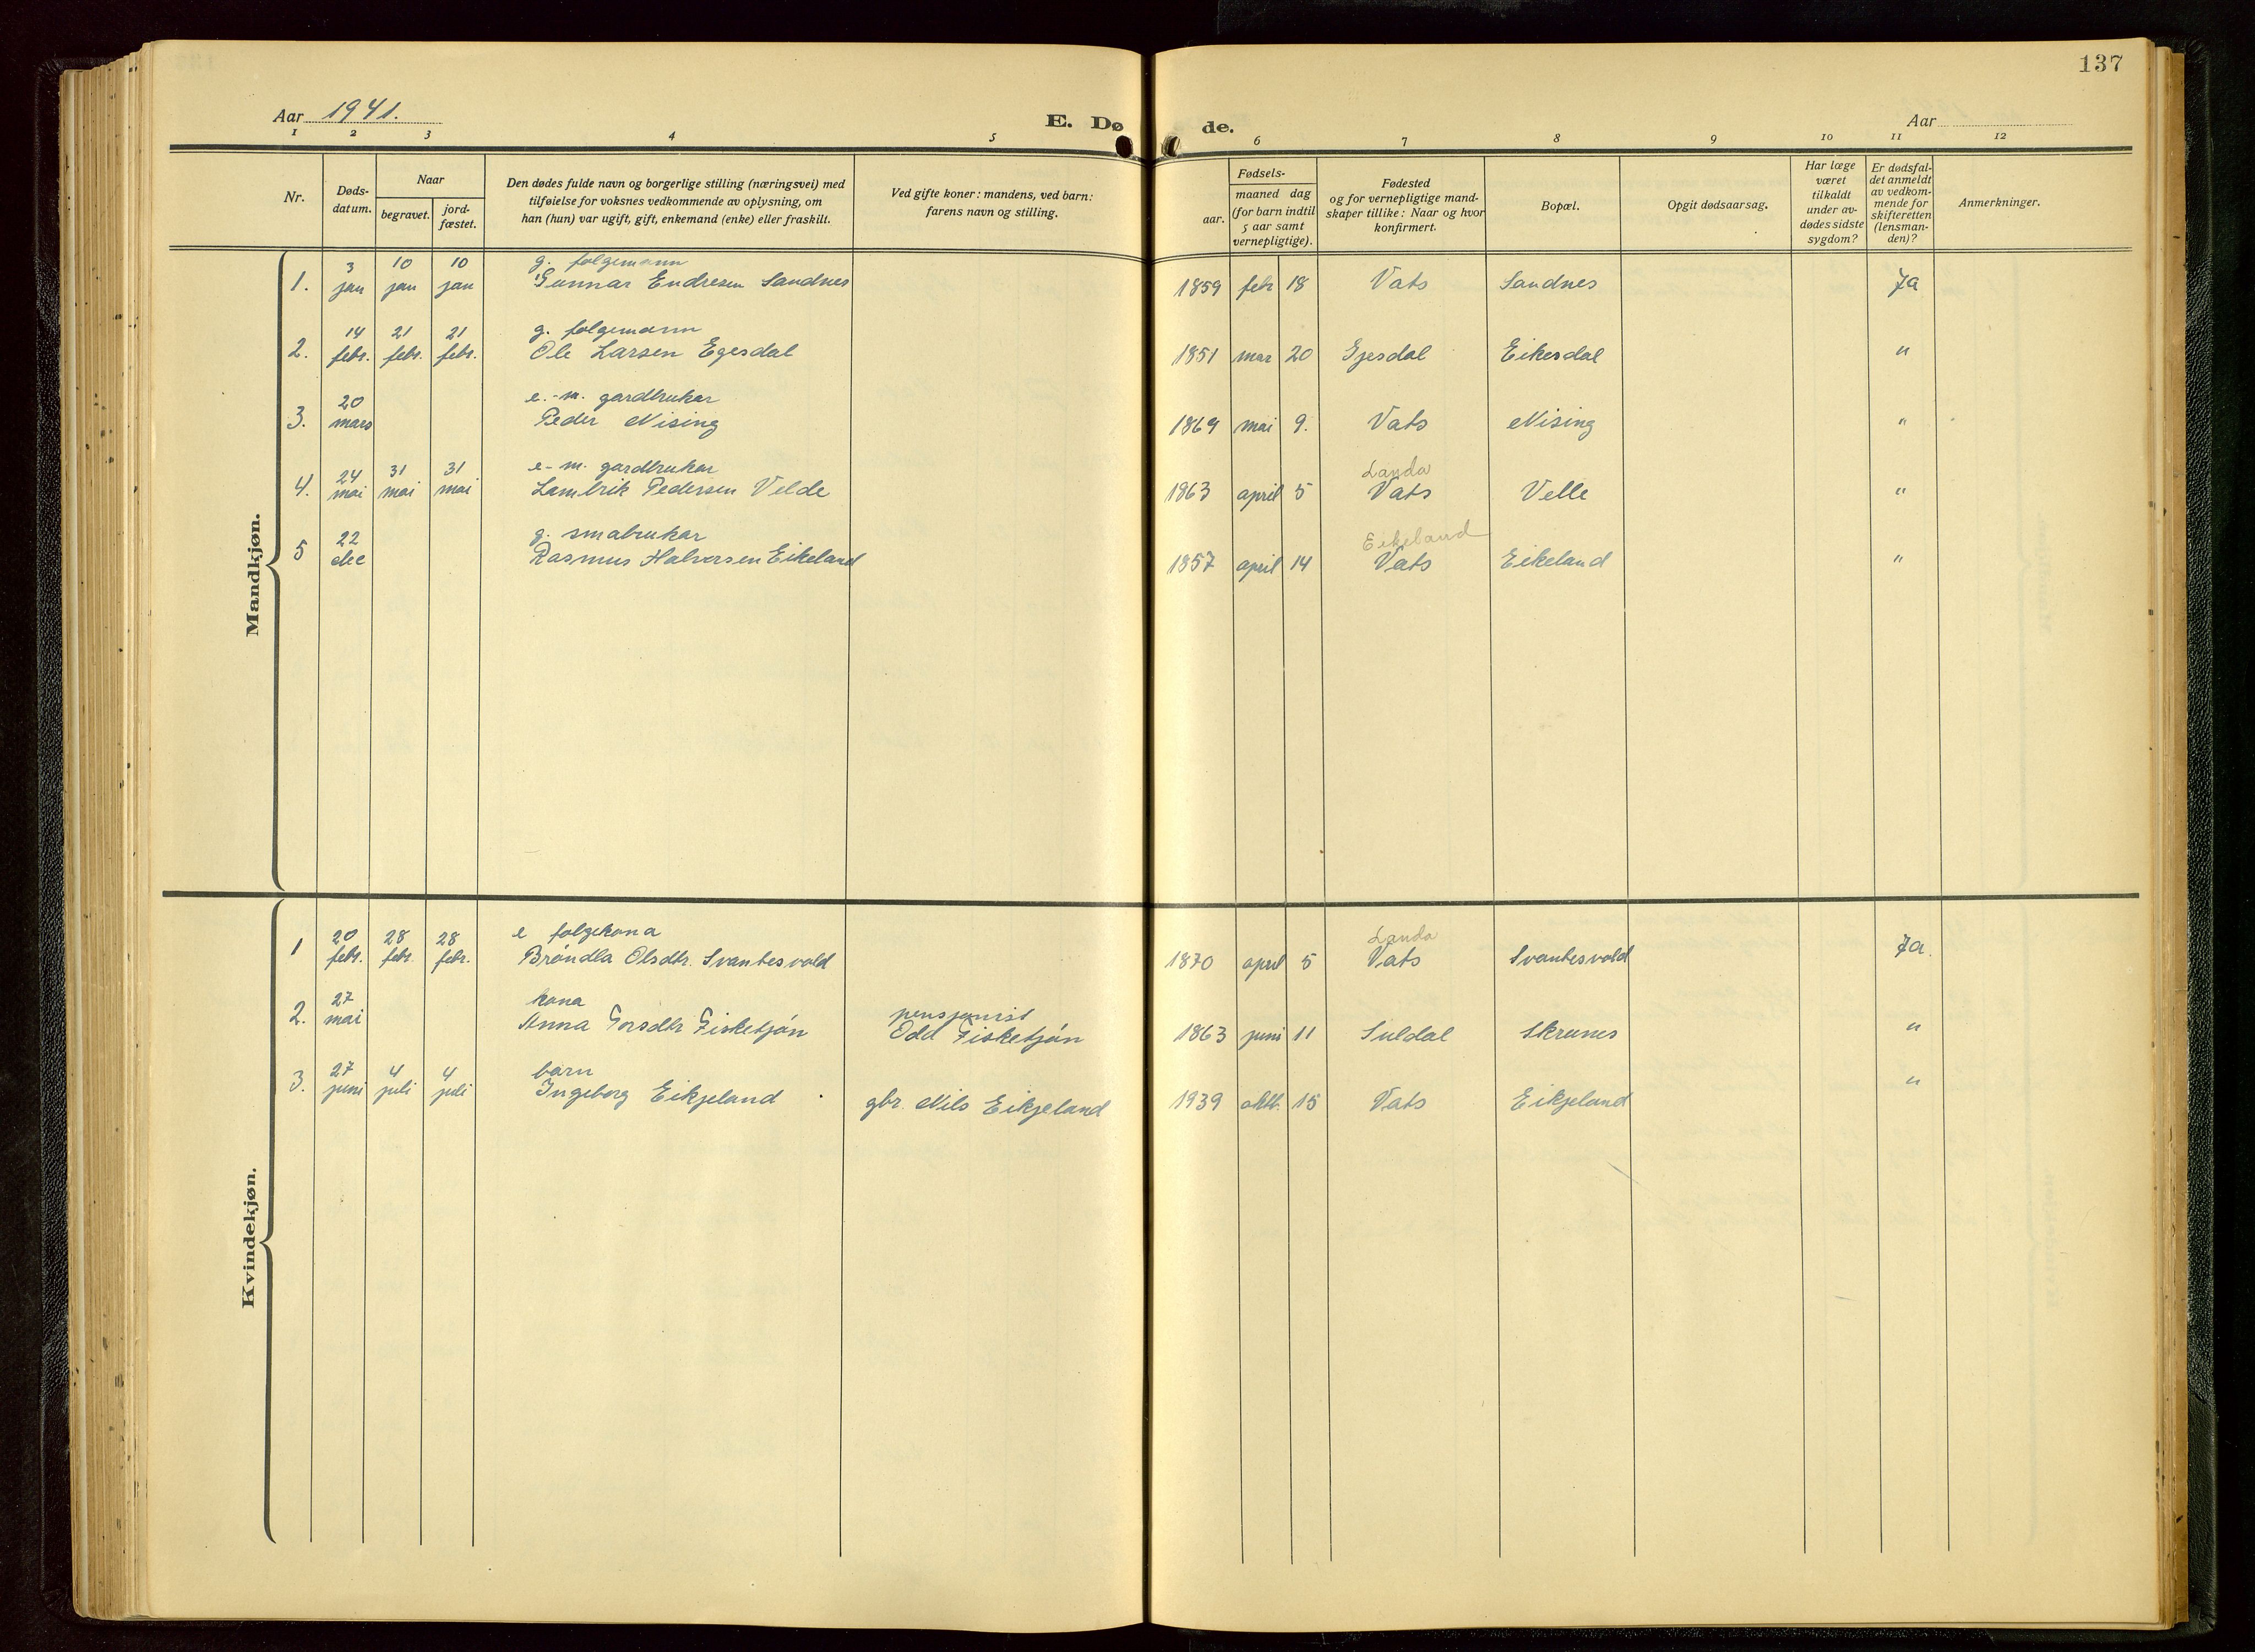 137
Aar 1941.
E. Døde.
Aar
1 2 3 4 5 6 7 8 9 10 11 12
Nr.
Døds-
datum.
Naar
begravet.
jord-
fæstet.
Den dødes fulde navn og borgerlige stilling (næringsvei) med
tilføielse for voksnes vedkommende av oplysning, om
han (hun) var ugift, gift, enkemand (enke) eller fraskilt.
Ved gifte koner: mandens, ved barn:
farens navn og stilling.
Fødsels-
aar.
maaned dag
(for barn indtil
5 aar samt
vernepligtige).
Fødested
og for vernepligtige mand-
skaper tillike: Naar og hvor
konfirmert.
Bopæl.
Opgit dødsaarsag.
Har læge
været
tilkaldt
under av-
dødes sidste
sygdom?
Er dødsfal-
det anmeldt
av vedkom-
mende for
skifteretten
(lensman-
den)?
Anmerkninger.
Mandkjøn.
3 10 10 g. folgemann
1. jan jan jan Gunnar Endresen Sandnes 1859 febr 18 Vats Sandnes Ja
14 21 21 g. folgemann
2. febr. febr. febr. Ole Larsen Egesdal 1851 mar 20 Gjesdal Eikesdal "
20 e.-m. gardbrukar
3. mars Peder Nising 1869 mai 9. Vats Nising "
24 31 31 e-m. gardbrukar Landa
4. mai mai mai Lambrik Pedersen Velde 1863 april 5 Vats Velle "
22 g. smabrukar Eikeland
5 des Rasmus Halvorsen Eikeland 1857 april 14 Vats Eikeland "
Kvindekjøn.
20 28 28 e folgekona Landa
1 febr. febr. febr. Brøndla Olsdtr. Svantesvold 1870 april 5 Vats Svantesvold Ja.
27 kona pensjonist
2. mai Anna Torsdtr Fisketjón Odd Fisketjón 1863 juni 11 Suldal Skrunes "
27 4 4 barn
3. juni juli juli Ingeborg Eikjeland gbr. Nils Eikjeland 1939 oktb. 15 Vats Eikjeland "